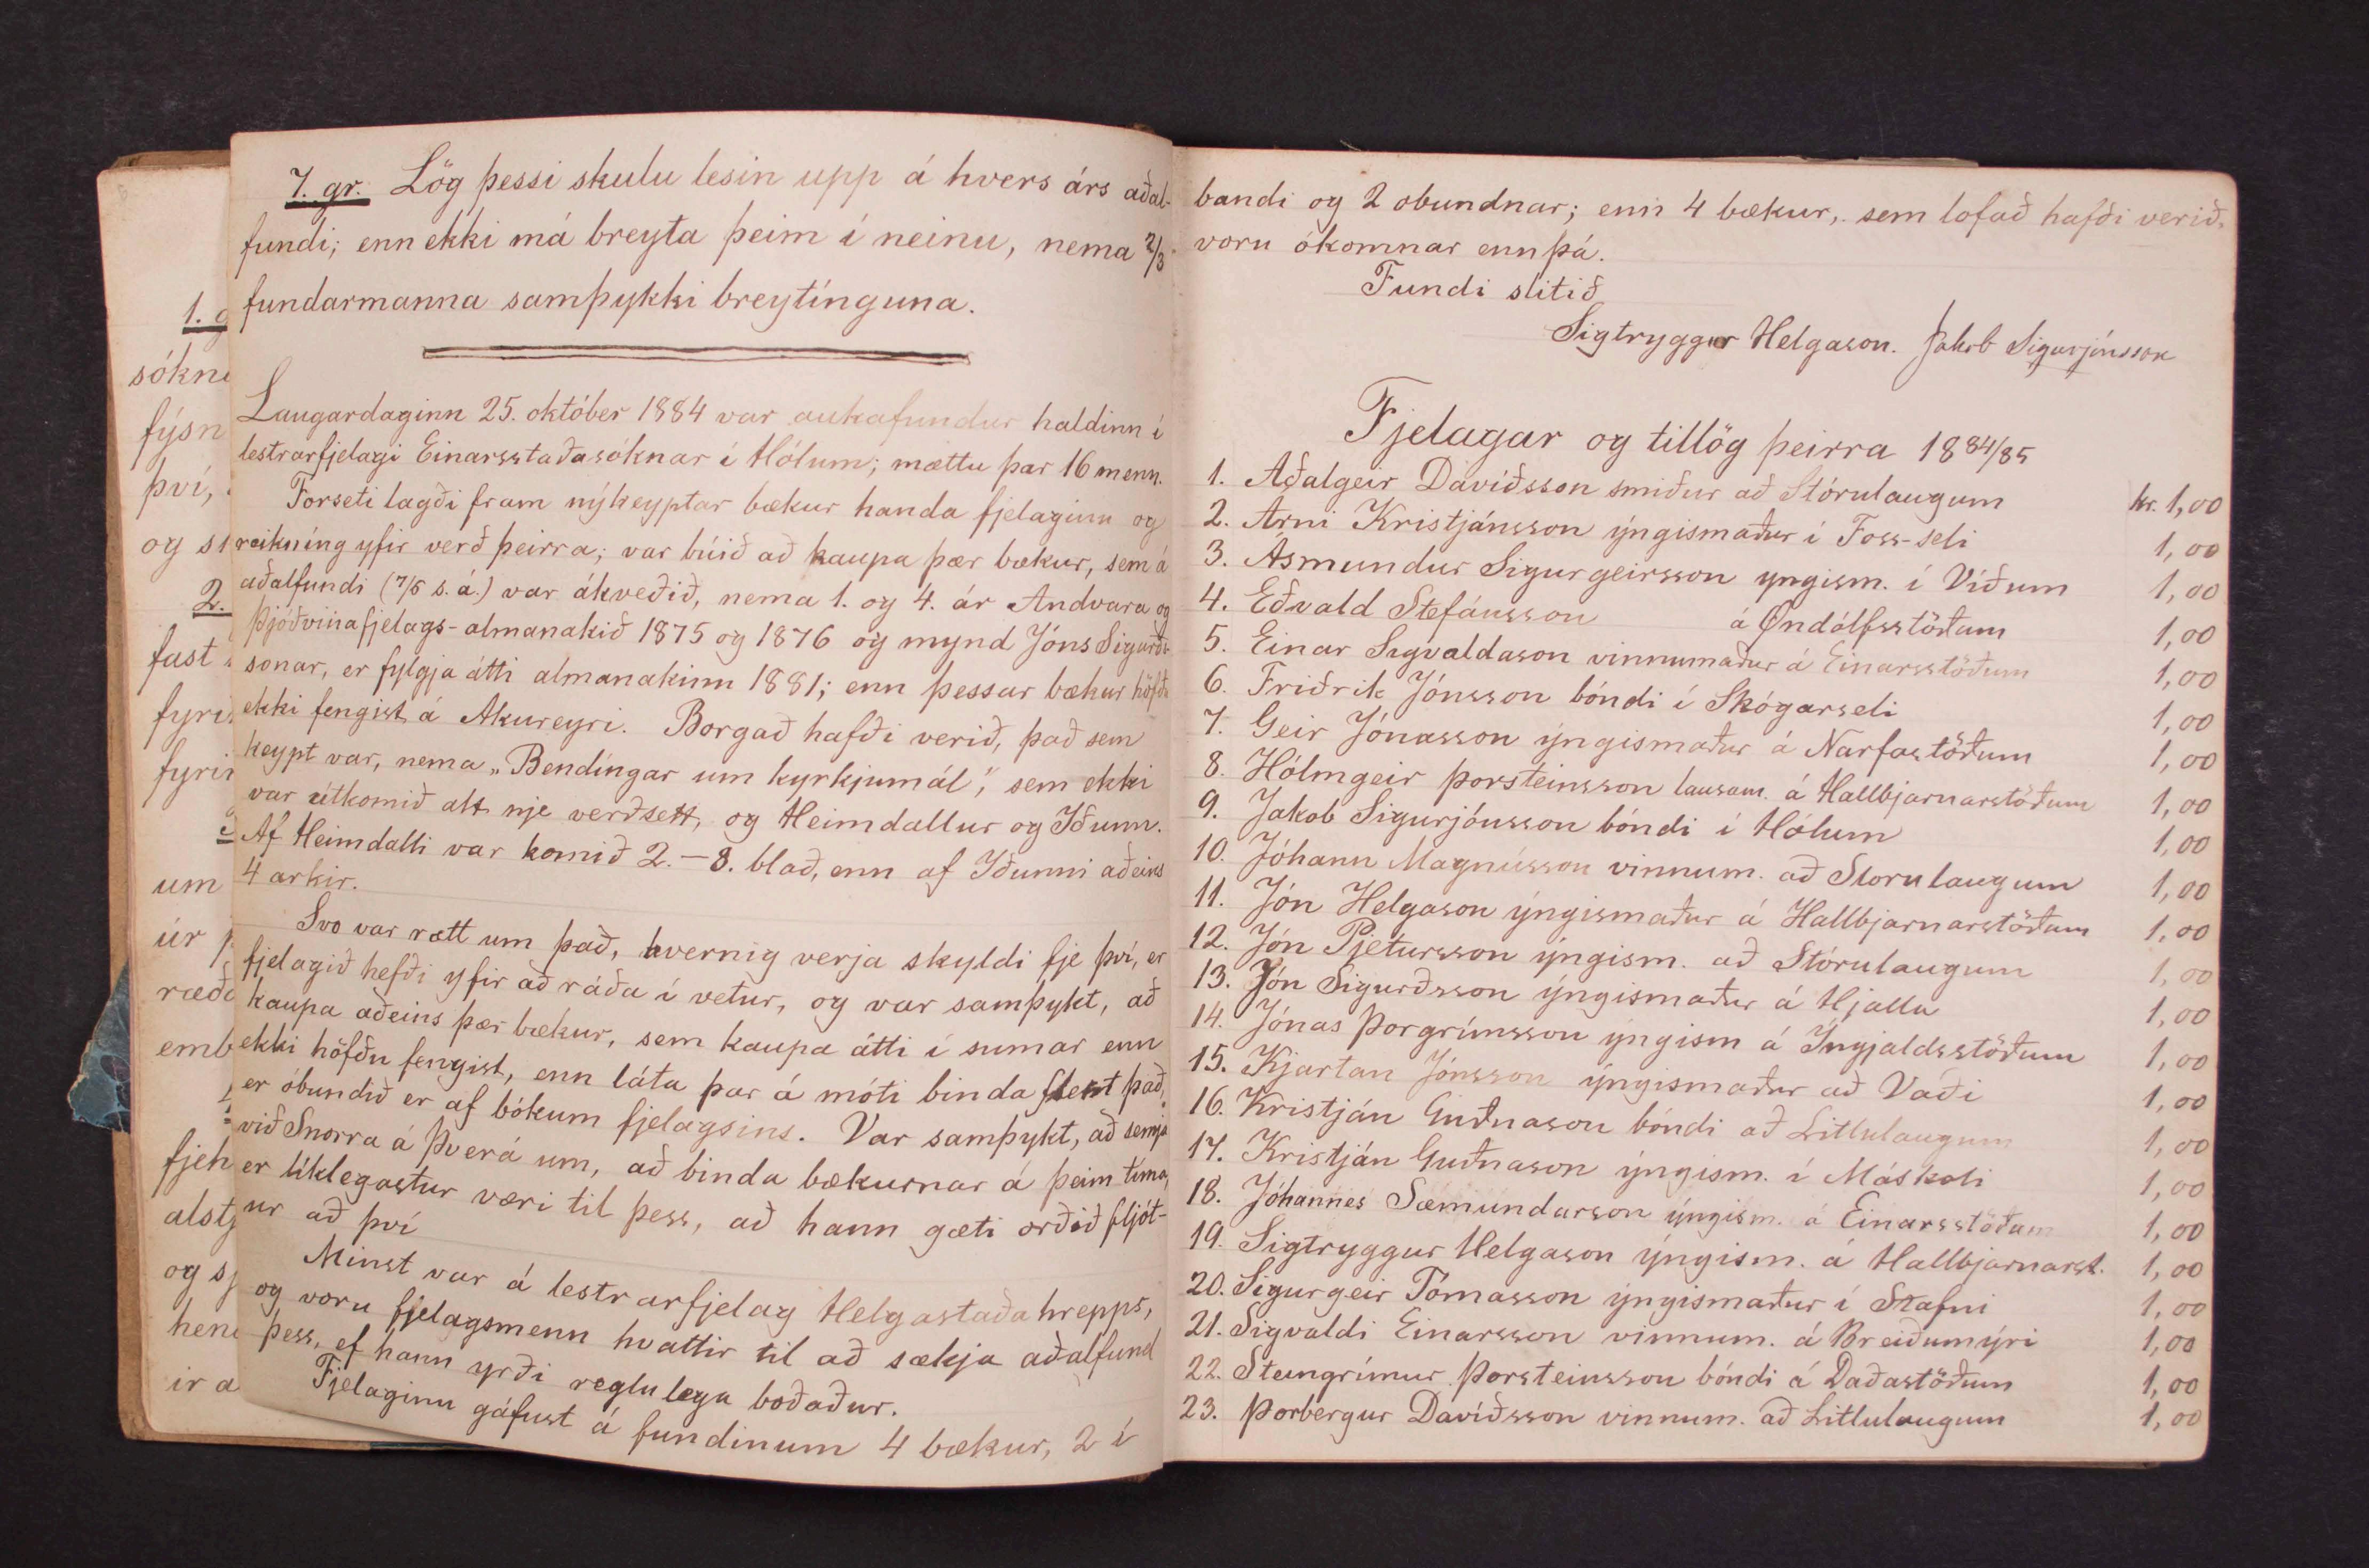 7. gr. Lög þessi skulu lesin upp á hvers árs aðal-
fundi; enn ekki má breyta þeim í neinu, nema 2/3
fundarmanna samþykki breytínguna.
Laugardaginn 25. október 1884 var aukafundur haldinn í
lestrarfjelagi Einarsstaðasóknar í Hólum; mættu þar 16 menn.
Forseti lagði fram nýkeyptar bækur handa fjelaginu og
reikníng yfir verð þeirra; var búið að kaupa þær bækur, sem á
aðalfundi (7/5 s. á.) var ákveðið, nema 1. og 4. ár Andvara og
Þjóðvinafjelags-almanakið 1875 og 1876 og mynd Jóns Sigurðs-
sonar, er fylgja átti almanakinn 1881; enn þessar bækur höfðu
ekki fengist á Akureyri. Borgað hafði verið, það sem
keypt var, nema „Bendíngar um kyrkjumál", sem ekki
var útkomið alt nje verðsett, og Heimdallur og Iðunn.
Af Heimdalli var komið 2.-8. blað, enn af Iðunni aðeins
4 arkir.
Svo var rætt um það, hvernig verja skyldi fje því, er
fjelagið hefði yfir að ráða í vetur, og var samþykt, að
kaupa aðeins þær bækur, sem kaupa átti í sumar enn
ekki höfðu fengist, enn láta þar á móti binda flest það,
er óbundið er af bókum fjelagsins. Var samþykt, að semja
við Snorra á Þverá um, að binda bækurnar á þeim tíma,
er líklegastur væri til þess, að hann gæti orðið fljót-
ur að því
Minst var á lestrarfjelag Helgastaðahrepps,
og voru fjelagsmenn hvattir til að sækja aðalfund
þess, ef hann yrði reglulega boðaður.
Fjelaginu gáfust á fundinum 4 bækur, 2 í
1. g
sókn
fýsn
því,
og s
2.
fast
fyri
fyri
um
úr
ræð
emb
fjel
alst
og s
hen
ir a
bandi og 2 obundnar; enn 4 bækur, sem lofað hafði verið,
voru ókomnar enn þá.
Fundi slitið
Sigtryggur Helgason. Jakob Sigurjónsson
Fjelagar og tillög þeirra 1884/85
1. Aðalgeir Davíðsson smiður að Stórulaugum kr. 1,00
2. Arni Kristjánsson ýngismaður í Foss-seli 1,00
3. Ásmundur Sigurgeirsson yngism. í Víðum 1,00
4. Eðvald Stefánsson á Øndólfsstöðum 1,00
5. Einar Sigvaldason vinnumaður á Einarsstöðum 1,00
6. Friðrik Jónsson bóndi í Skógarseli 1,00
7. Geir Jónasson ýngismaður á Narfastöðum 1,00
8. Hólmgeir Þorsteinsson lausam. á Hallbjarnarstöðum 1,00
9. Jakob Sigurjónsson bóndi í Hólum 1,00
10. Jóhann Magnússon vinnum. að Storulaugum 1,00
11. Jón Helgason ýngismaður á Hallbjarnarstöðum 1,00
12. Jón Pjetursson ýngism. að Stórulaugum 1,00
13. Jón Sigurðsson ýngismaður á Hjalla 1,00
14. Jónas Þorgrímsson ýngism á Íngjaldsstöðum 1,00
15. Kjartan Jónsson ýngismaður að Vaði 1,00
16. Kristján Guðnason bóndi að Litlulaugum 1,00
17. Kristján Guðnason ýngism. í Máskoti 1,00
18. Jóhannes Sæmundarson ýngism. á Einarsstöðum 1,00
19. Sigtryggur Helgason ýngism. á Hallbjarnarst. 1,00
20. Sigurgeir Tómasson ýngismaður í Stafni 1,00
21. Sigvaldi Einarsson vinnum. á Breiðumýri 1,00
22. Steingrímur Þorsteinsson bóndi á Daðastöðum 1,00
23. Þorbergur Davíðsson vinnum. að Litlulaugum 1,00